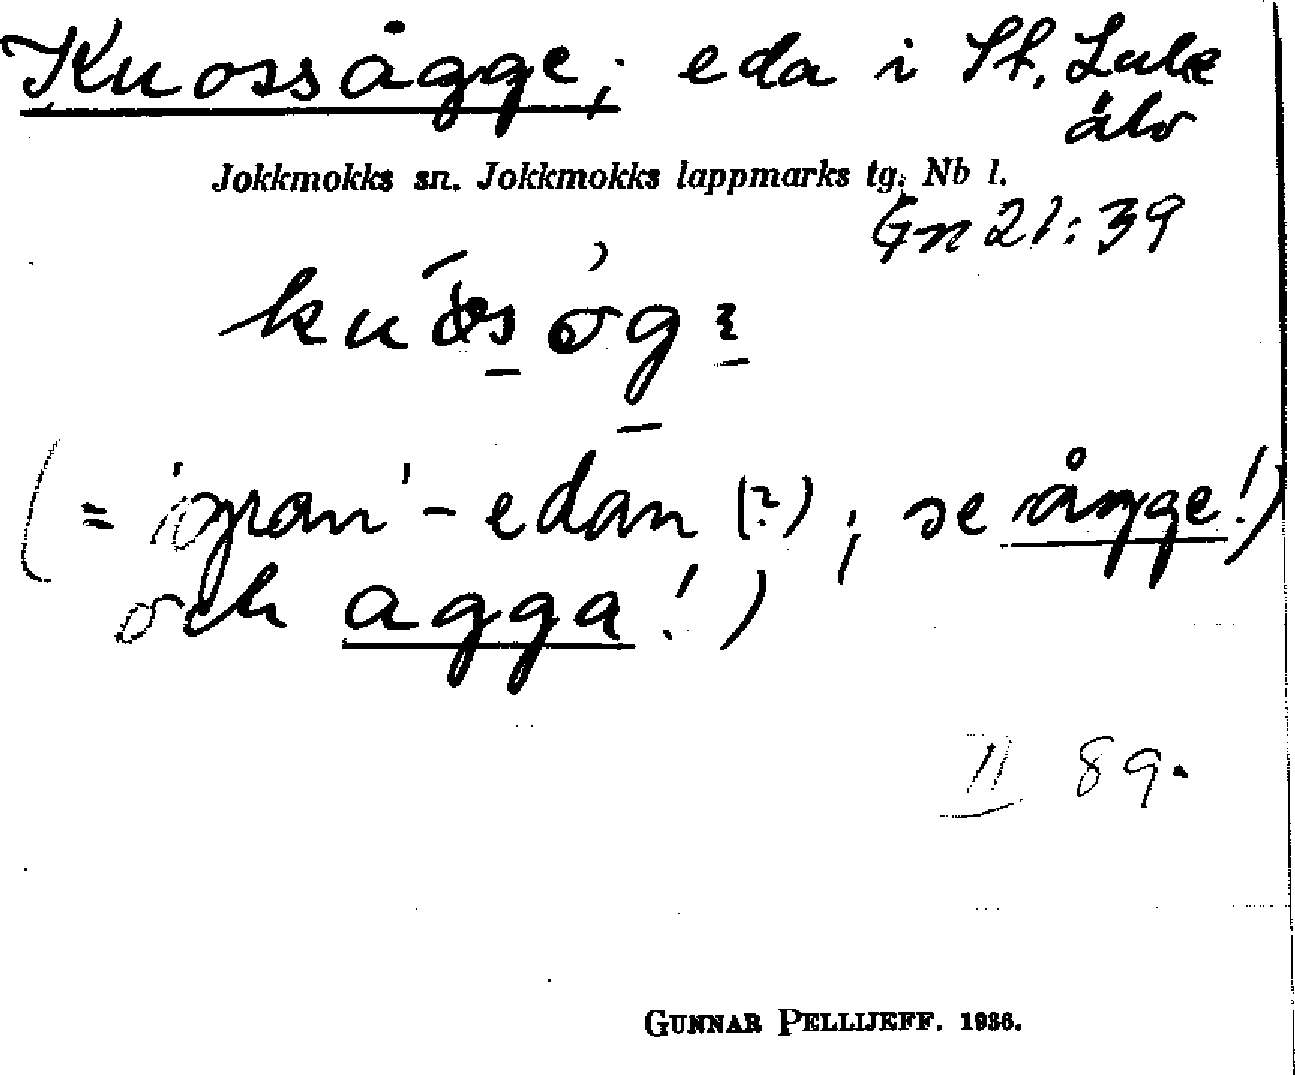 Kuossågge; eda i St. Lule
älv
Jokkmokks sn. Jokkmokks lappmarks tg. Nb l.
Gn 21:39
(= 'gran' - edan (?); se ågge!)
och agga!)
II 89.
GUNNAR PELLIJEFF. 1936.